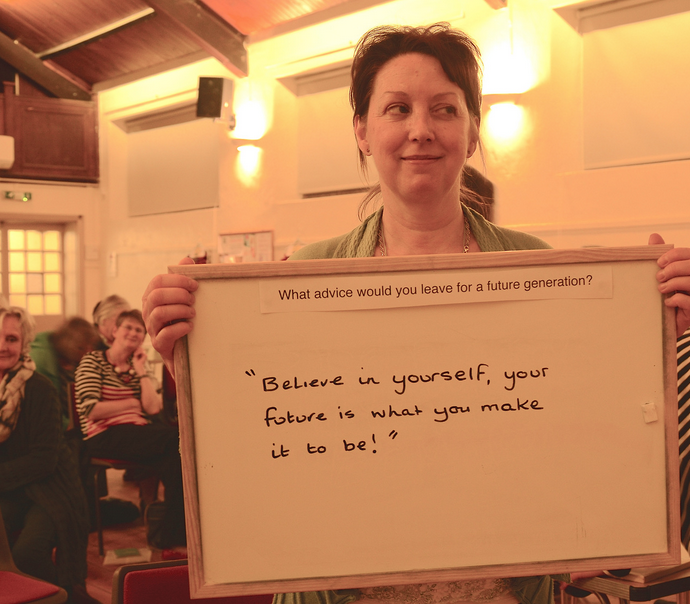 What advice would you leave for a future generation?
"Believe in yourself, your
future is what you make
it to be!"